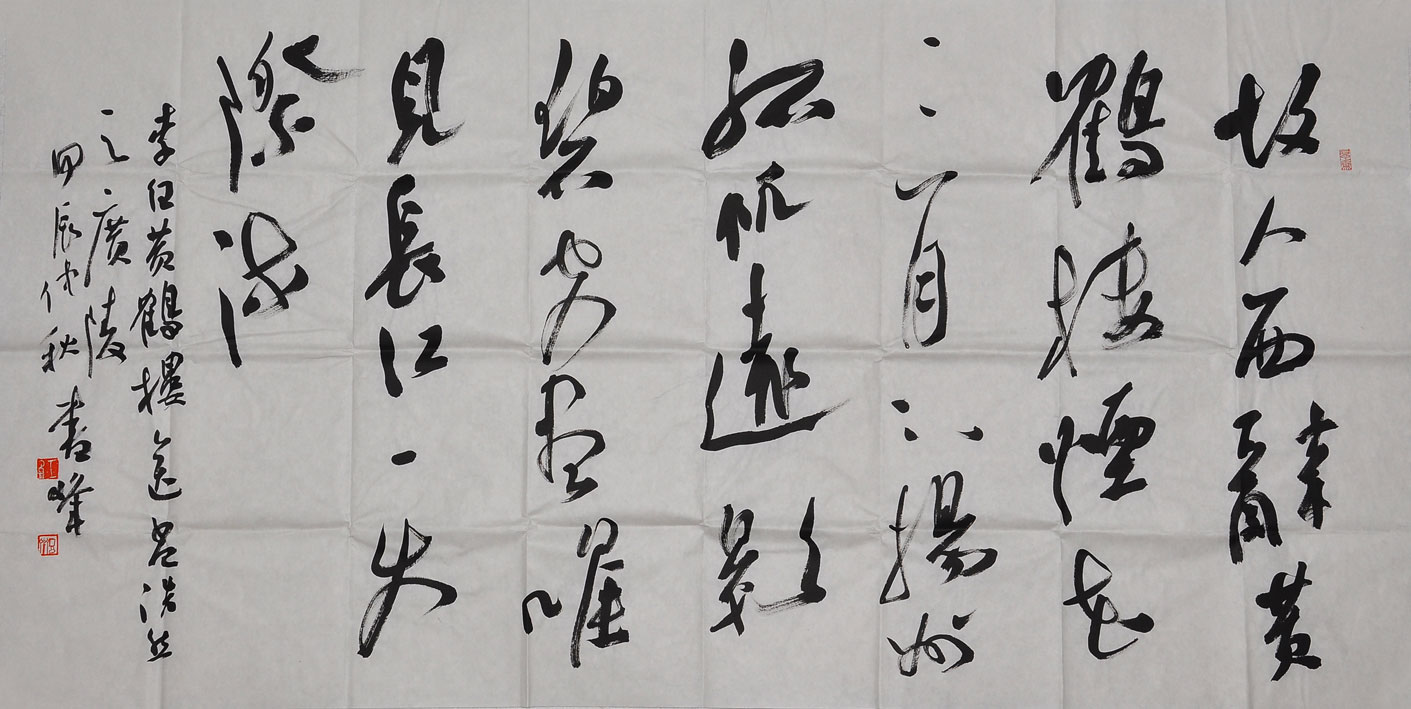 故人西辭黄
鶴楼煙花
三月下揚州
孤帆遠影
碧空盡唯
見長江天
際流
李白黄鶴樓送孟浩然
之廣陵
甲辰仲秋